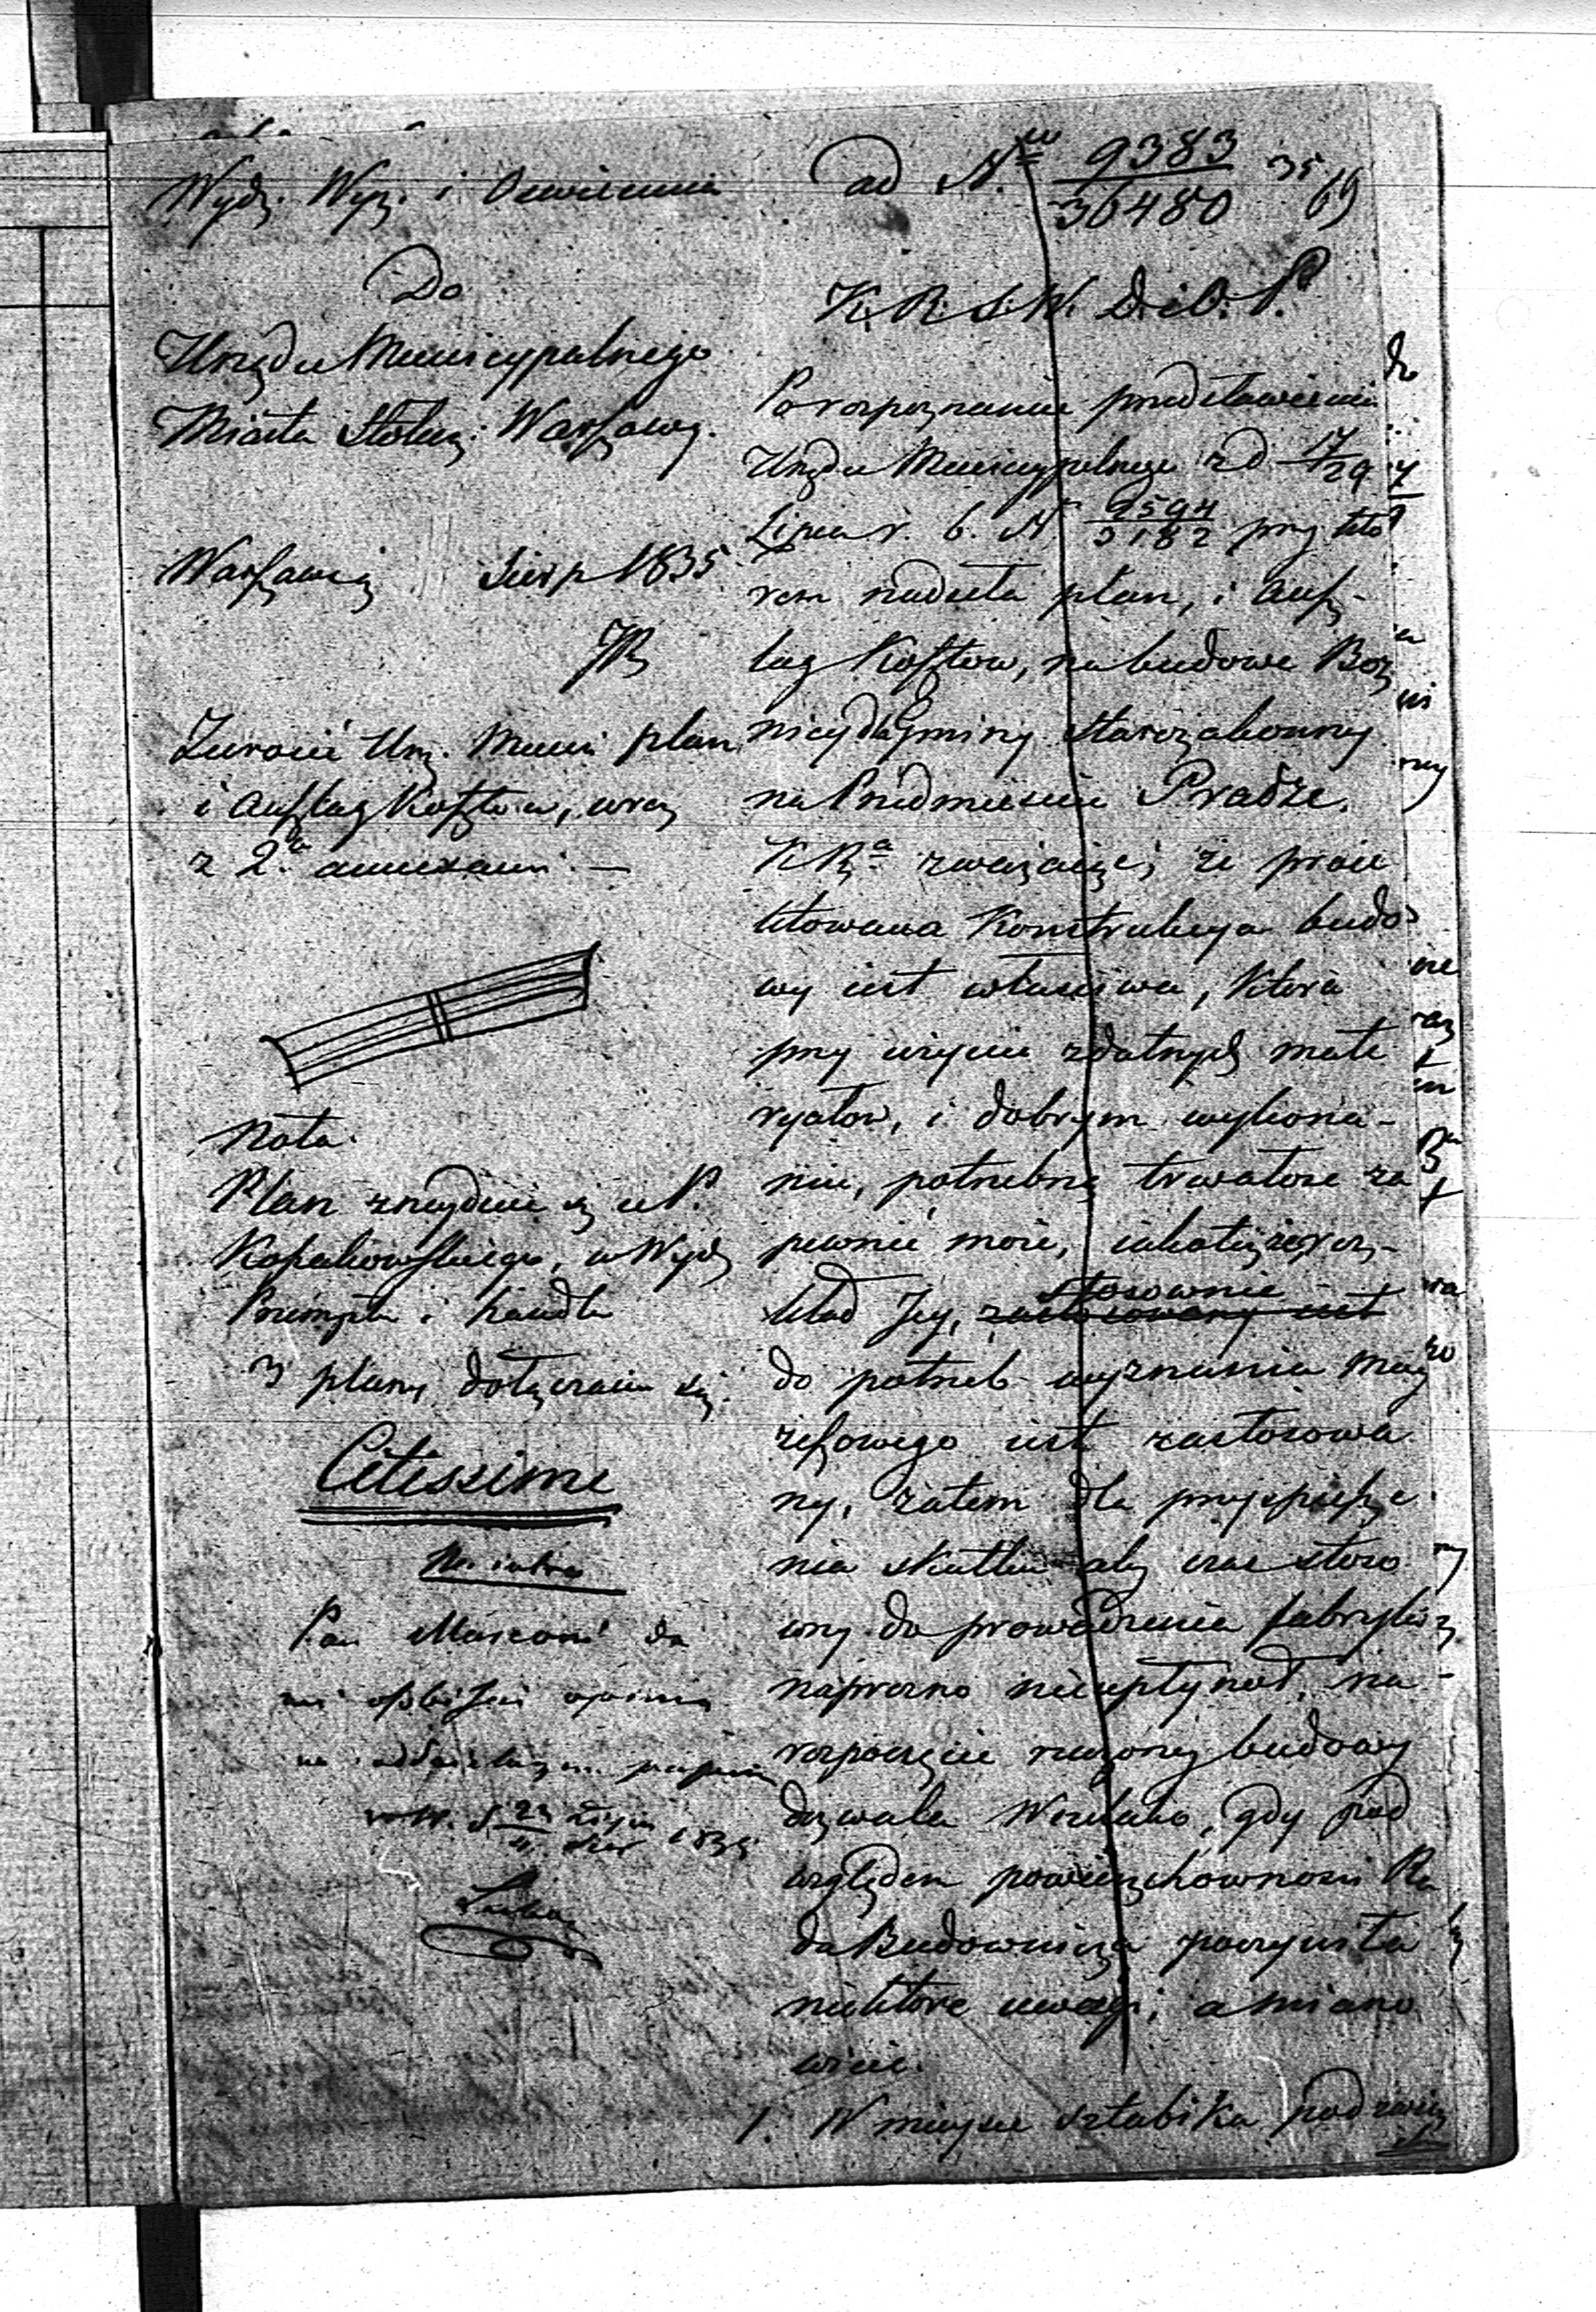 Wydz. Wyz. i Oswiecenia
ad N. 9383
36480 35 69
Do
Urzędu Municypalnego
Miasta Stołecz: Warszawy.
Warszawie Sierp 1835
Zwrócić Urz. Munic plan
i anszlag kosztow, wraz
z 2. annexami. —
Nota.
Plan znayduie się u P.
w Wydz
Przemysłu i handlu
3 plany dołączaiu się.
Citissime
Pan Marconi da
mi opinią
na papierze
1835
K. R. S. W. D. i O. P.
Po rozpoznaniu przedstawienia
Urzędu Municypalnego z d 17/29
Lipca r. b. N przy któ
rem nadesła plan, i ansz-
lag kosztow, na budowę Boż
nicy dla gminy Starozakonny
na Przedmieściu Pradze.
KRa zważaiąc, że proie
ktowana Konstrukcya budo
wy iest właściwa, która
przy użyciu zdatnych mate
ryałow, i dobrym wykona-
niu, potrzebną trwałość za
pewnić może, iakoteż że roz-
kład Jey, stosownie zastosowany iest
do potrzeb wyznania Moy
żeszowego iest zastosowa
ny, zatem dla przyspiesze
nia skutku aby czas stoso
wny do prowadzenia fabryki
naprozno nieupłynoł, na
rozpoczęcie rzeczoney budowy
dozwala Wszelako, gdy pod
względem powierzchownosci Ra
da Budownicza poczyniła
niektóre uwagi, a miano
wicie.
1. W mieysce sztabika pod